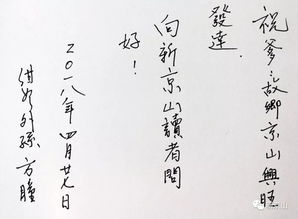 祝爹〻故鄉京山興旺
發達.
向新京山讀者問
好!
二〇一八年四月廿九日
紺弩外孫 方瞳